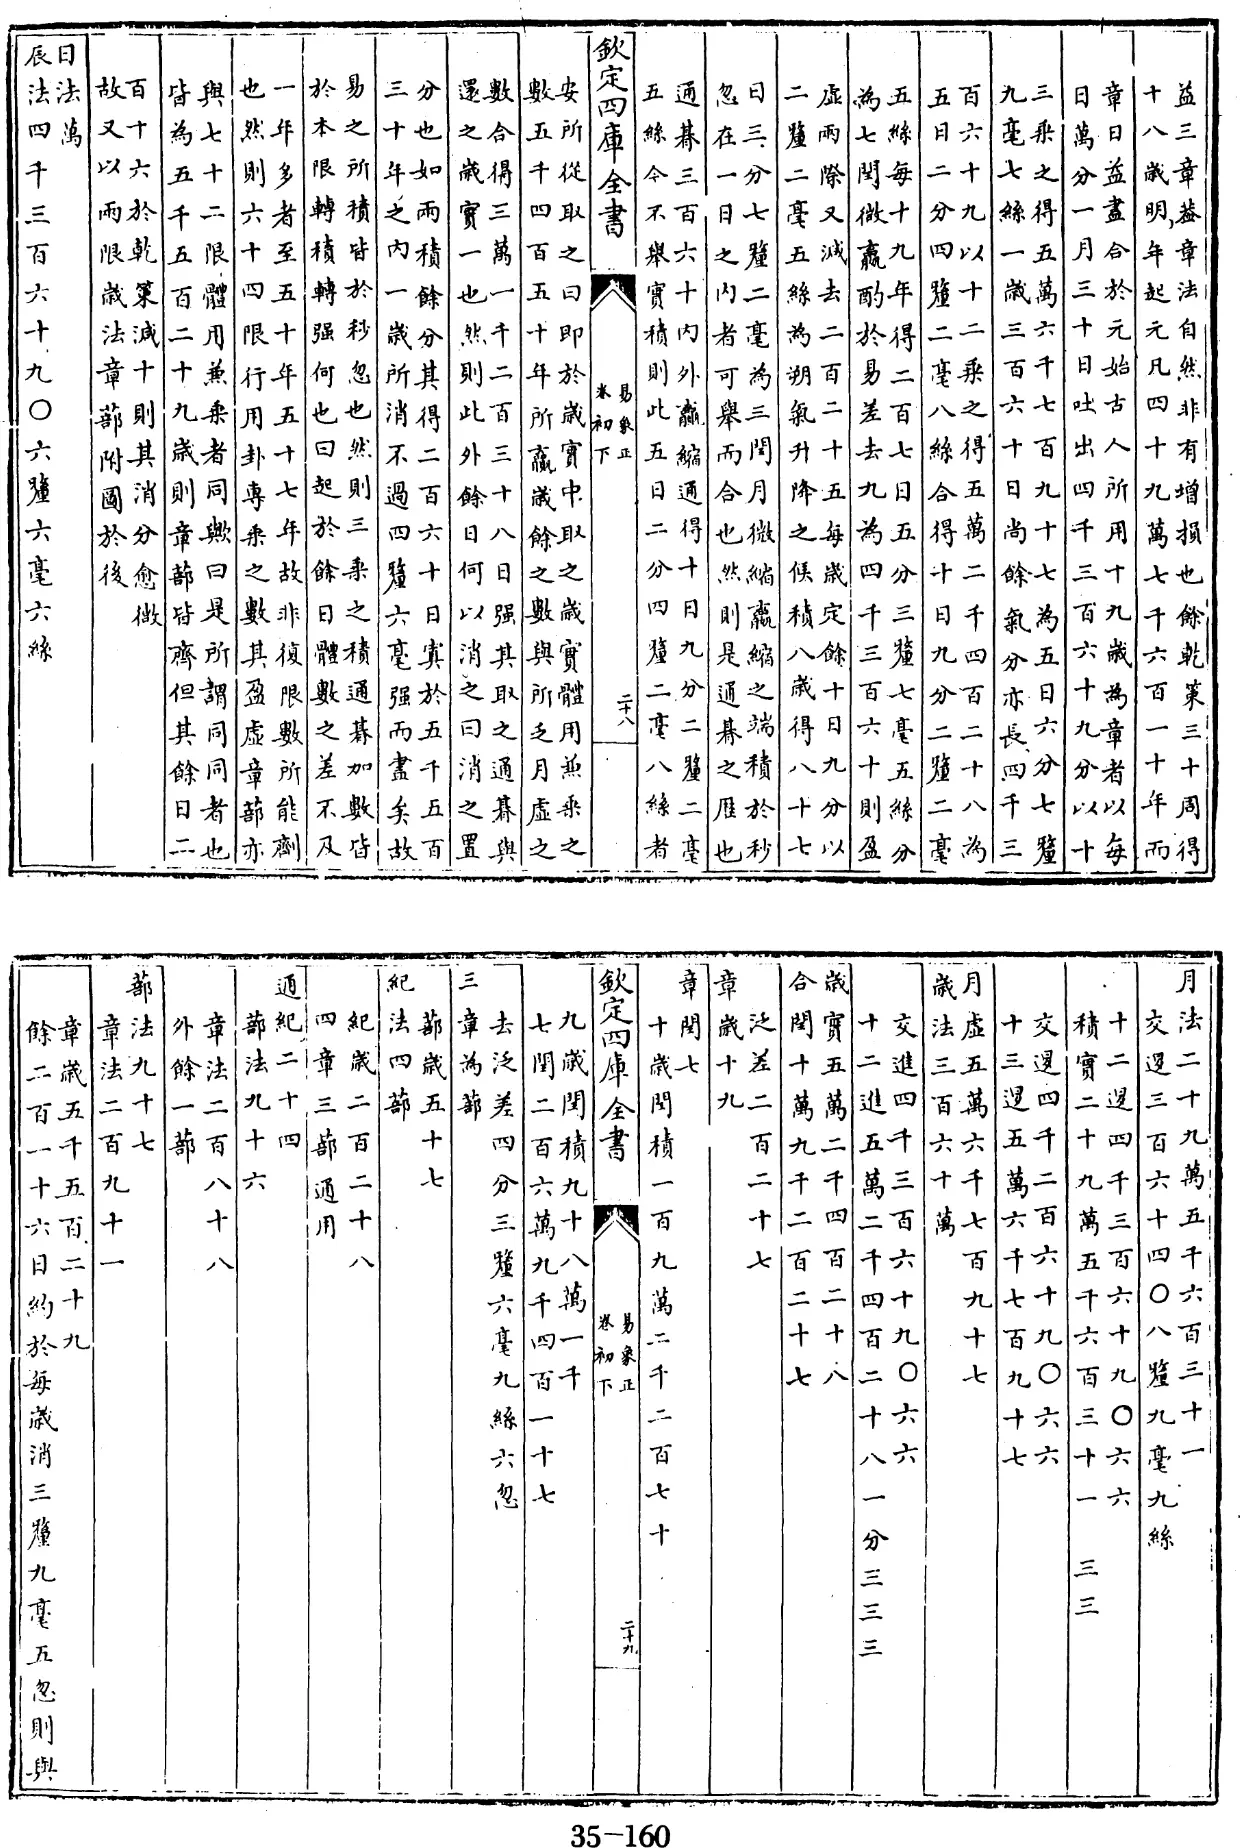 益三章葢章法自然非有增損也餘乾策三十周得
十八歲明年起元凡四十九萬七千六百一十年而
章日益盡合於元始古人所用十九歲為章者以每
日萬分一月三十日吐出四千三百六十九分以十
三乘之得五萬六千七百九十七為五日六分七釐
九毫七絲一歲三百六十日尚餘氣分亦長四千三
百六十九以十二乘之得五萬二千四百二十八為
五日二分四釐二毫八絲合得十日九分二釐二毫
五絲每十九年得二百七日五分三釐七毫五絲分
為七閏微贏酌於易差去九為四千三百六十則盈
虛兩際又減去二百二十五每歲定餘十日九分以
二釐二毫五絲為朔氣升降之候積八歲得八十七
日三分七釐二毫為三閏月微縮贏縮之端積於秒
忽在一日之內者可舉而合也然則是通朞之曆也
通朞三百六十內外贏縮通得十日九分二釐二毫
五絲令不舉實積則此五日二分四釐二毫八絲者
欽定四庫全書
易象正
卷初下
二十八
安所從取之曰即於歲實中取之歲實體用兼乘之
數五千四百五十年所贏歲餘之數與所乏月虛之
數合得三萬一千二百三十八日強其取之通朞與
還之歲實一也然則此外餘日何以消之曰消之置
分也如兩積餘分其得二百六十日寘於五千五百
三十年之內一歲所消不過四釐六毫强而盡矣故
易之所積皆於秒忽也然則三乘之積通朞加數皆
於本限轉積轉强何也曰起於餘日體數之差不及
一年多者至五十年五十七年故非復限數所能劑
也然則六十四限行用卦專乘之數其盈虛章蔀亦
與七十二限體用兼乘者同歟曰是所謂同同者也
皆為五千五百二十九歲則章蔀皆齊但其餘日二
百十六於乾策減十則其消分愈微
故又以兩限歲法章蔀附圖於後
日法萬
辰法四千三百六十九〇六釐六毫六絲
月法二十九萬五千六百三十一
交逻三百六十四〇八釐九毫九絲
十二逻四千三百六十九〇六六
積實二十九萬五千六百三十一 三三
交逻四千二百六十九〇六六
十三逻五萬六千七百九十七
月虛五萬六千七百九十七
歲法三百六十萬
交進四千三百六十九〇六六
十二進五萬二千四百二十八一分三三三
歲實五萬二千四百二十八
合閏十萬九千二百二十七
泛差二百二十七
章歲十九
章閏七
十歲閏積一百九萬二千二百七十
欽定四庫全書
易象正
卷初下
二十九
九歲閏積九十八萬一千
七閏二百六萬九千四百一十七
去泛差四分三釐六毫九絲六忽
三章為蔀
蔀歲五十七
紀法四蔀
紀歲二百二十八
四章三蔀通用
通紀二十四
蔀法九十六
章法二百八十八
外餘一蔀
蔀法九十七
章法二百九十一
章歲五千五百二十九
餘二百一十六日約於每歲消三釐九毫五忽則與
35-160